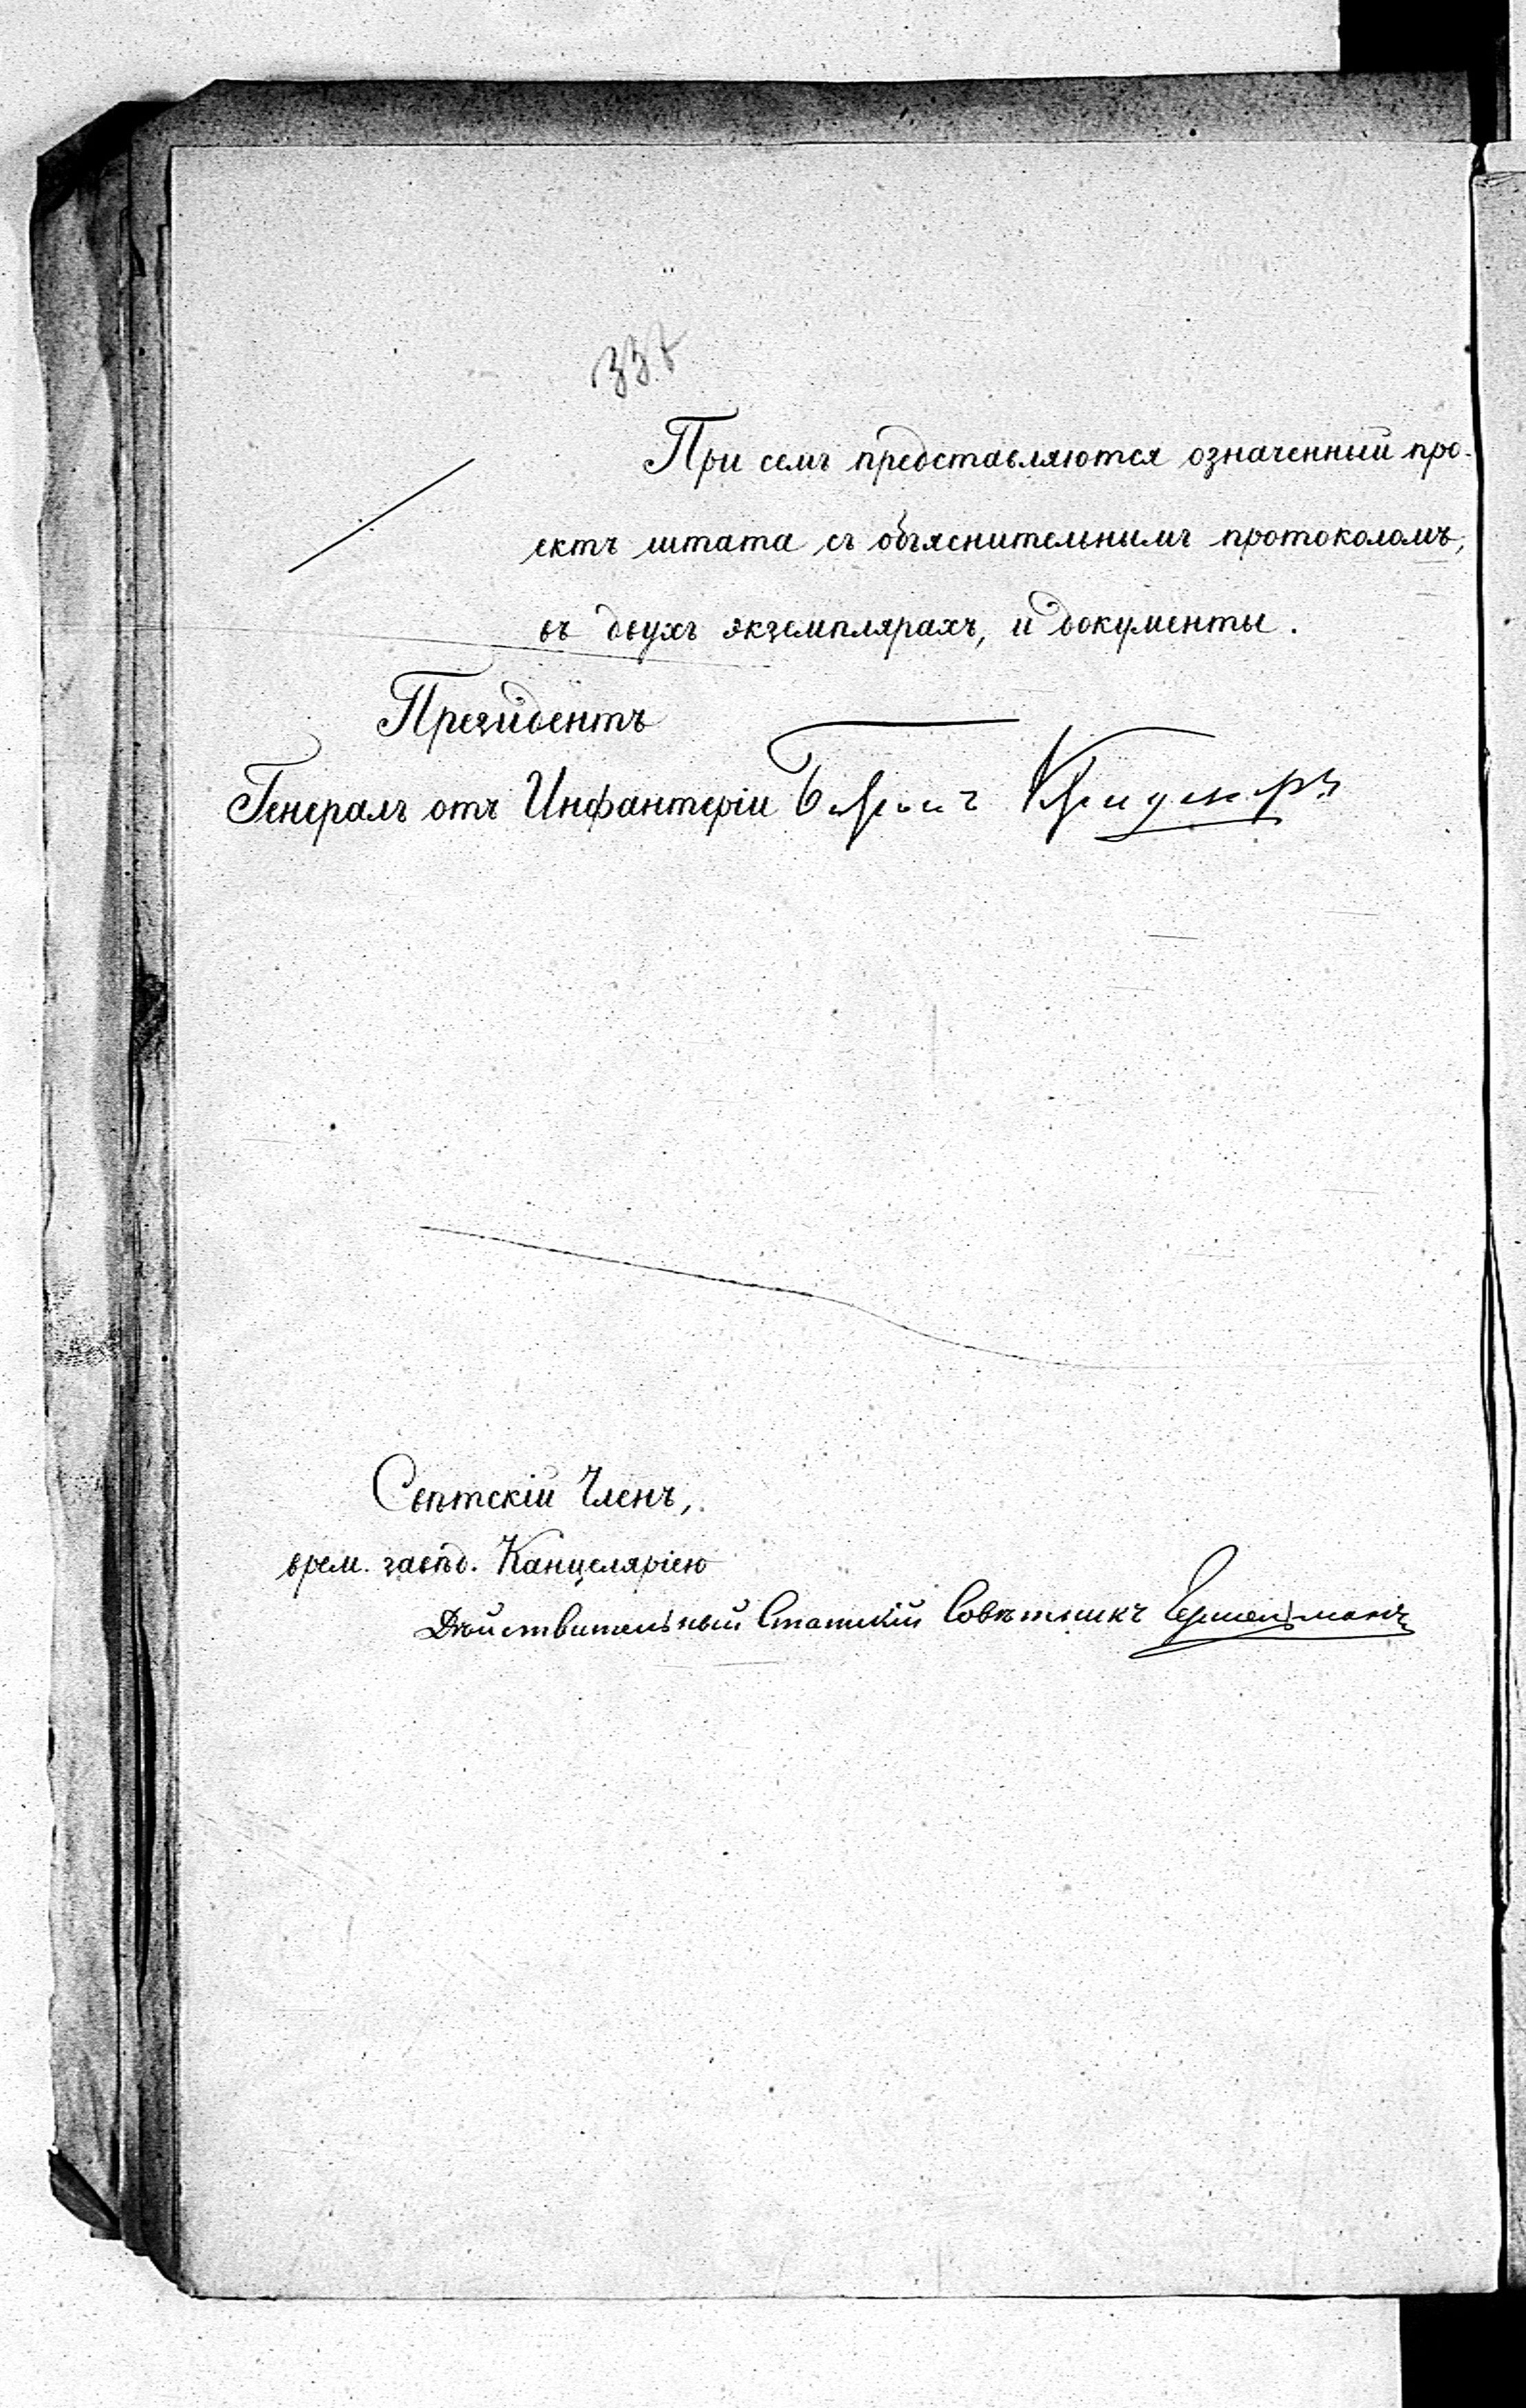 При семъ представляются означенный про-
ектъ штата съ объяснительнымъ протоколомъ,
въ двухъ экземплярахъ, и документы.
Президентъ
Генералъ отъ Инфантеріи Баронъ Криденеръ
Свѣтскій Членъ,
врем. завѣд. Канцеляріею
Дѣйствительный Статскій Совѣтникъ